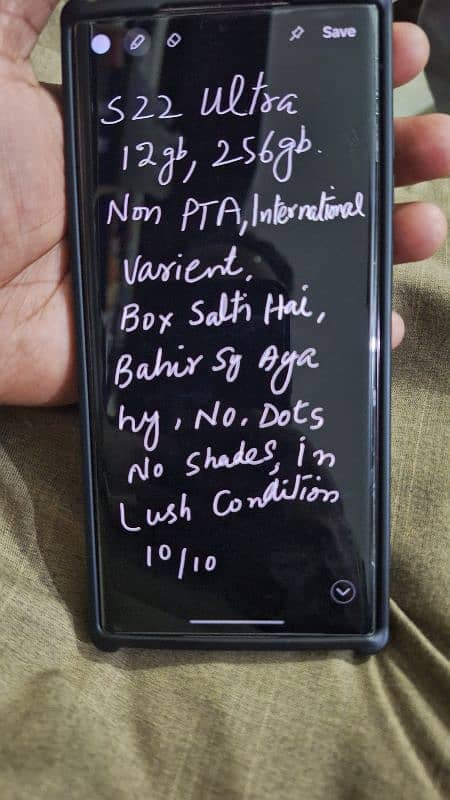 Save
S22 Ultra
12gb, 256gb.
Non PTA, International
Varient,
Box Sath Hai,
Bahir Sy Aya
hy, No. Dots
No Shades, in
Lush Condition
10/10